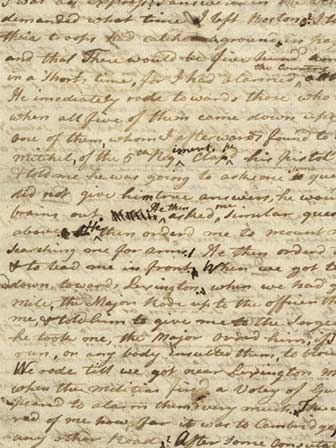 demanded what time I left Boston
their troops had catched aground in
and that There would be five hundred
in a Short time, for I had alarmed
He imediately rode towards those who
when all five of them came down up
one of them, whom I afterwards found to
Mitchel, of the 5th Regiment, Clap his pistol
& told me he was going to ask me
did not give him true answers, he wou
brains out. He then asked me similar ques
above. He then orderd me to mount
searching me for arms. He then orderd
& to lead me in front. When we got t
down towards Lexington. when we had g
mile, the Major Rode up to the officer
me, & told him to give me to the Serj
he took me, the Major orderd him, if
run, or any body insulted them, to blo
We rode till we got near Lexington M
when the militia fired a Voley of
peard to alarm them very much. The
red of me how far it was to Cambridg
any other Road? After some consul